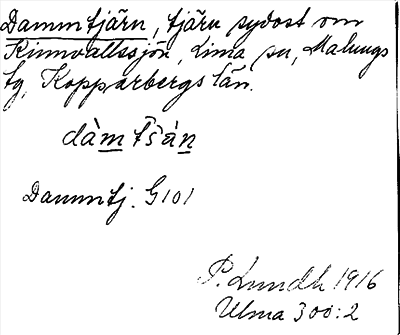 Dammtjärn, tjärn sydost om
Kinnvallssjön, Lima sn, Malungs
tg, Kopparbergs län.
dàm tšä́n
Dammtj. G101
P. Lundh 1916
Ulma 300:2